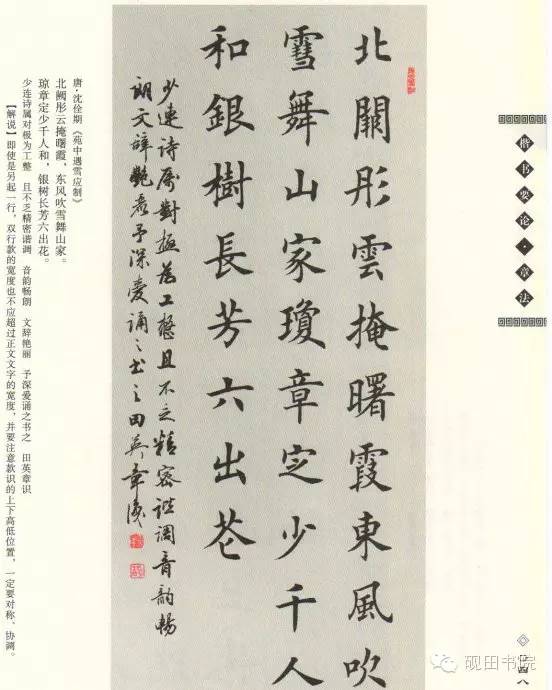 楷书要论·章法
〇四八
北闕彤雲掩曙霞東風吹
雪舞山家瓊章定少千人
和銀樹長芳六出花
少連诗属對極為工整且不乏精密諧調音韵暢
朗文辞艷丽予深爱诵之书之田英章識
唐·沈佺期《苑中遇雪应制》
北阙彤云掩曙霞，东风吹雪舞山家。
琼章定少千人和，银树长芳六出花。
少连诗属对极为工整 且不乏精密谐调 音韵畅朗 文辞艳丽 予深爱诵之书之 田英章识
【解说】即使是另起一行，双行款的宽度也不应超过正文文字的宽度，并要注意款识的上下高低位置，一定要对称、协调。
砚田书院